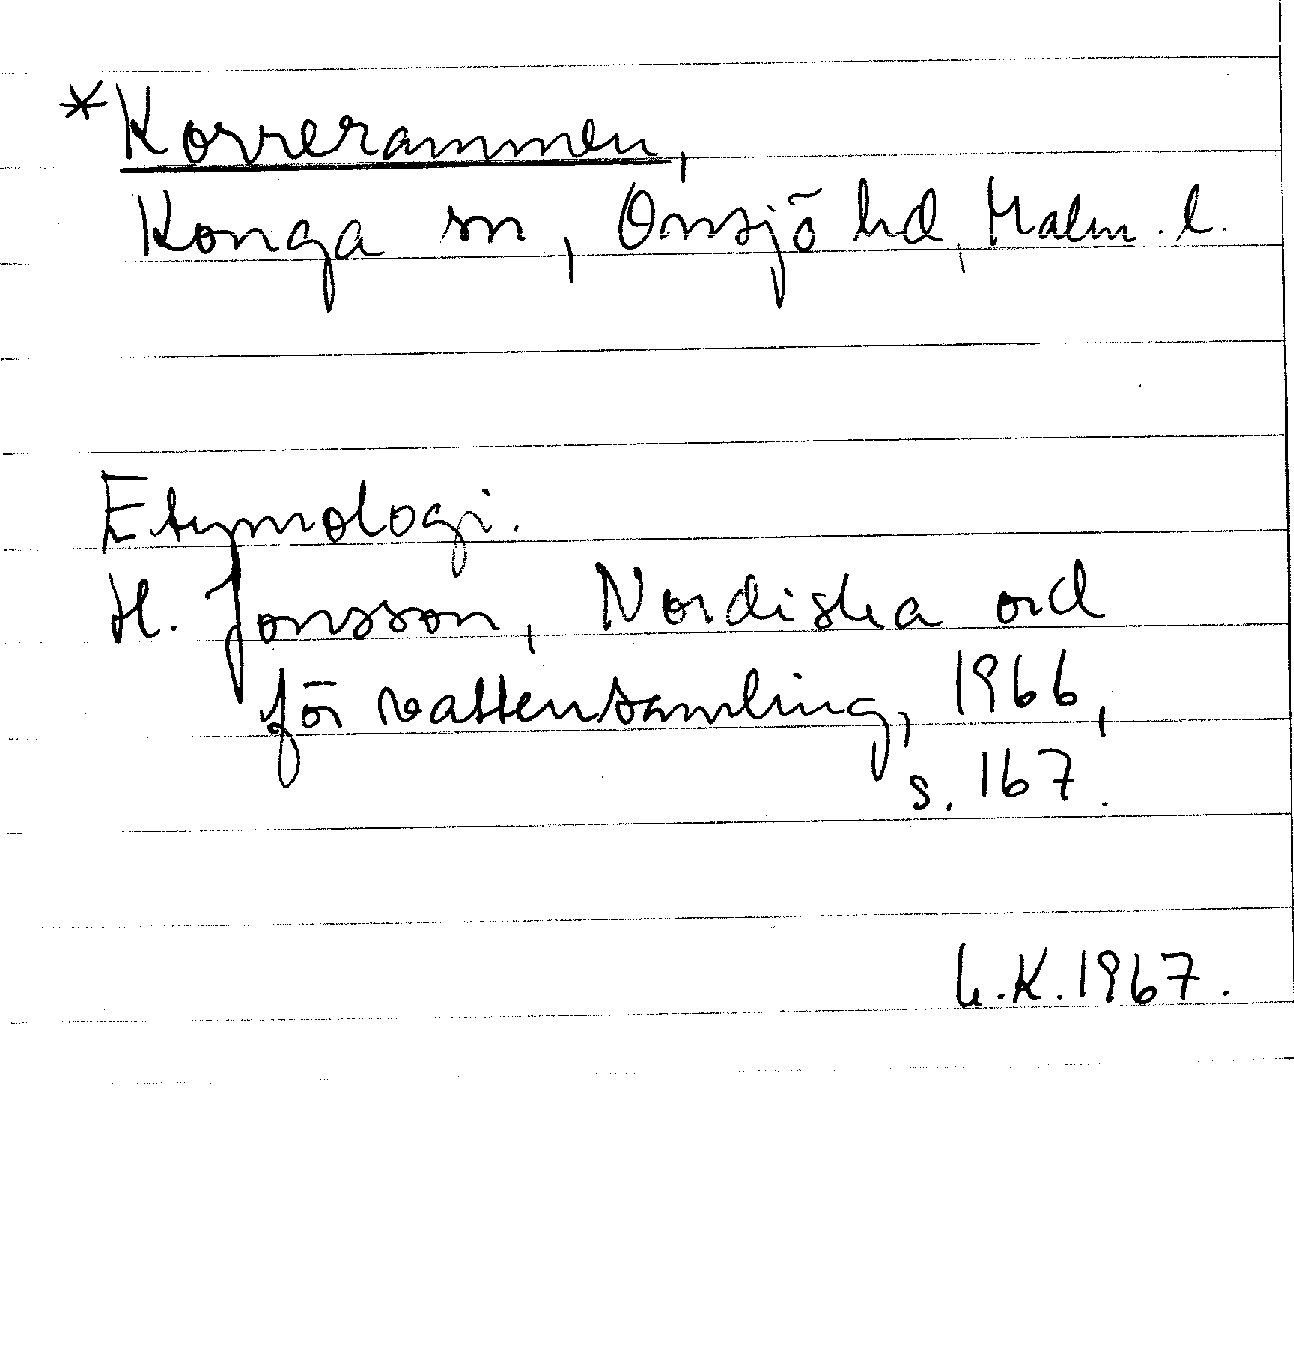 *Korrerammen,
Konga sn, Onsjö hd, Malm. l.
Etymologi.
H. Jonsson, Nordiska ord
för vattensamling, 1966,
s. 167.
L.K. 1967.